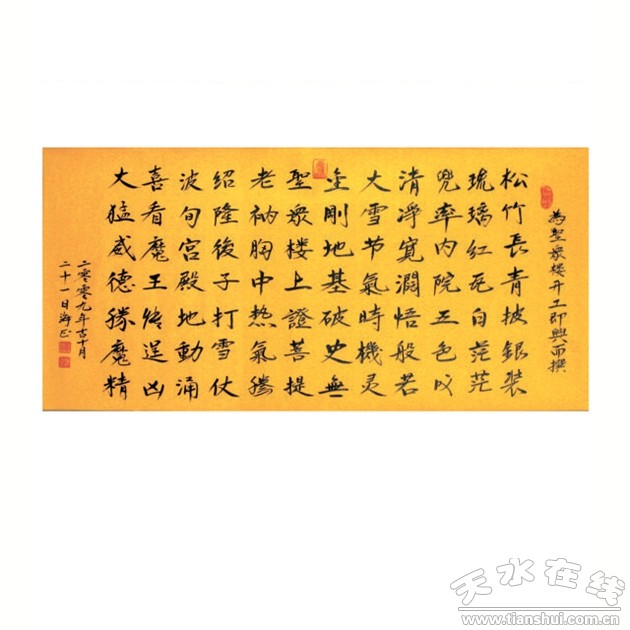 為聖眾楼开工即興而撰
松竹長青披銀装
琉璃紅瓦白茫茫
兜率内院五色
清凈寬濶悟般若
大雪节氣時機灵
金剛地基破史無
聖眾楼上證菩提
老衲胸中热氣腾
绍隆後子打雪仗
波旬宫殿地動涌
喜看魔王终逞凶
大猛威德勝魔精
二零零九年古十月
二十一日
天水在线
www.tianshui.com.cn